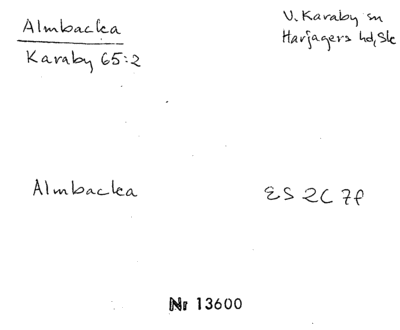 Almbacka
V. Karaby sn
Karaby 65:2
Harjagers hd, Sk
Almbacka
ES 2C 7f
Nr 13600